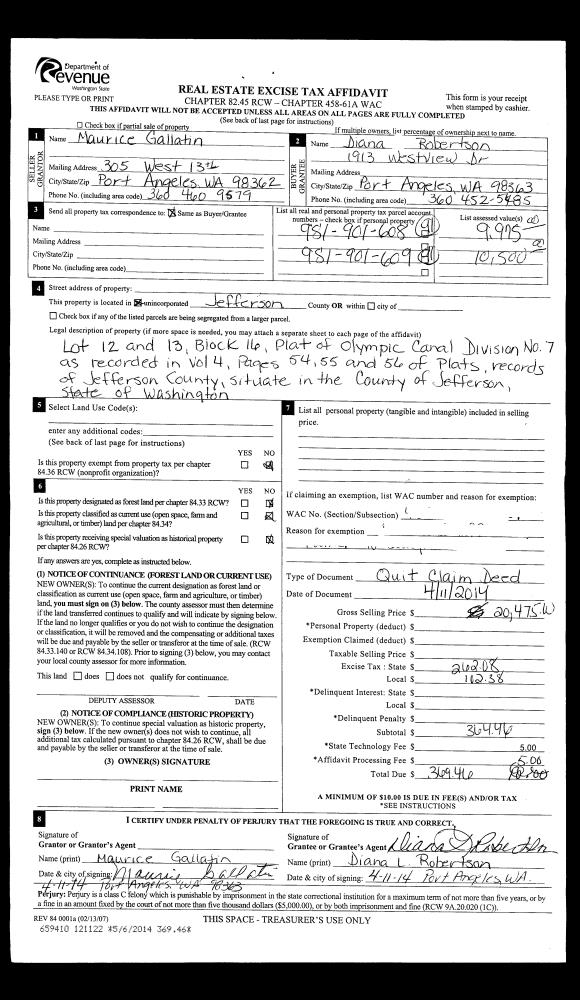 Department of
Revenue
Washington State
PLEASE TYPE OR PRINT
REAL ESTATE EXCISE TAX AFFIDAVIT
CHAPTER 82.45 RCW – CHAPTER 458-61A WAC
This form is your receipt
when stamped by cashier.
THIS AFFIDAVIT WILL NOT BE ACCEPTED UNLESS ALL AREAS ON ALL PAGES ARE FULLY COMPLETED
(See back of last page for instructions)
Check box if partial sale of property
If multiple owners, list percentage of ownership next to name.
1 Name Maurice Gallatin
SELLER GRANTOR
Mailing Address 305 West 13th
City/State/Zip Port Angeles, WA 98362
Phone No. (including area code) 360 460 9579
2 Name Diana Robertson
1913 Westview Dr
BUYER GRANTEE
Mailing Address
City/State/Zip Port Angeles, WA 98363
Phone No. (including area code) 360 452-5485
3 Send all property tax correspondence to: Same as Buyer/Grantee
Name
Mailing Address
City/State/Zip
Phone No. (including area code)
List all real and personal property tax parcel account
numbers – check box if personal property
981-901-608
981-901-609
List assessed value(s)
9,975
10,500
4 Street address of property:
This property is located in unincorporated Jefferson County OR within city of
Check box if any of the listed parcels are being segregated from a larger parcel.
Legal description of property (if more space is needed, you may attach a separate sheet to each page of the affidavit)
Lot 12 and 13, Block 16, Plat of Olympic Canal Division No. 7
as recorded in Vol 4, Pages 54, 55 and 56 of Plats, records
of Jefferson County, situate in the County of Jefferson,
State of Washington
5 Select Land Use Code(s):
enter any additional codes:
(See back of last page for instructions)
YES NO
Is this property exempt from property tax per chapter
84.36 RCW (nonprofit organization)?
6
YES NO
Is this property designated as forest land per chapter 84.33 RCW?
Is this property classified as current use (open space, farm and
agricultural, or timber) land per chapter 84.34?
Is this property receiving special valuation as historical property
per chapter 84.26 RCW?
If any answers are yes, complete as instructed below.
(1) NOTICE OF CONTINUANCE (FOREST LAND OR CURRENT USE)
NEW OWNER(S): To continue the current designation as forest land or
classification as current use (open space, farm and agriculture, or timber)
land, you must sign on (3) below. The county assessor must then determine
if the land transferred continues to qualify and will indicate by signing below.
If the land no longer qualifies or you do not wish to continue the designation
or classification, it will be removed and the compensating or additional taxes
will be due and payable by the seller or transferor at the time of sale. (RCW
84.33.140 or RCW 84.34.108). Prior to signing (3) below, you may contact
your local county assessor for more information.
This land does does not qualify for continuance.
DEPUTY ASSESSOR DATE
(2) NOTICE OF COMPLIANCE (HISTORIC PROPERTY)
NEW OWNER(S): To continue special valuation as historic property,
sign (3) below. If the new owner(s) does not wish to continue, all
additional tax calculated pursuant to chapter 84.26 RCW, shall be due
and payable by the seller or transferor at the time of sale.
(3) OWNER(S) SIGNATURE
PRINT NAME
7 List all personal property (tangible and intangible) included in selling
price.
If claiming an exemption, list WAC number and reason for exemption:
WAC No. (Section/Subsection)
Reason for exemption
Type of Document Quit Claim Deed
Date of Document 4/11/2014
Gross Selling Price $ 20,475.00
*Personal Property (deduct) $
Exemption Claimed (deduct) $
Taxable Selling Price $
Excise Tax : State $ 262.08
Local $ 102.38
*Delinquent Interest: State $
Local $
*Delinquent Penalty $
Subtotal $ 364.46
*State Technology Fee $ 5.00
*Affidavit Processing Fee $ 5.00
Total Due $ 369.46
A MINIMUM OF $10.00 IS DUE IN FEE(S) AND/OR TAX
*SEE INSTRUCTIONS
8 I CERTIFY UNDER PENALTY OF PERJURY THAT THE FOREGOING IS TRUE AND CORRECT.
Signature of
Grantor or Grantor's Agent
Name (print) Maurice Gallatin
Date & city of signing: Maurice Gallatin
4-11-14 Port Angeles, WA 98363
Signature of
Grantee or Grantee's Agent Diana L Robertson
Name (print) Diana L. Robertson
Date & city of signing: 4-11-14 Port Angeles, WA.
Perjury: Perjury is a class C felony which is punishable by imprisonment in the state correctional institution for a maximum term of not more than five years, or by
a fine in an amount fixed by the court of not more than five thousand dollars ($5,000.00), or by both imprisonment and fine (RCW 9A.20.020 (1C)).
REV 84 0001a (02/13/07)
THIS SPACE - TREASURER'S USE ONLY
659410 121122 *5/6/2014 369.46*